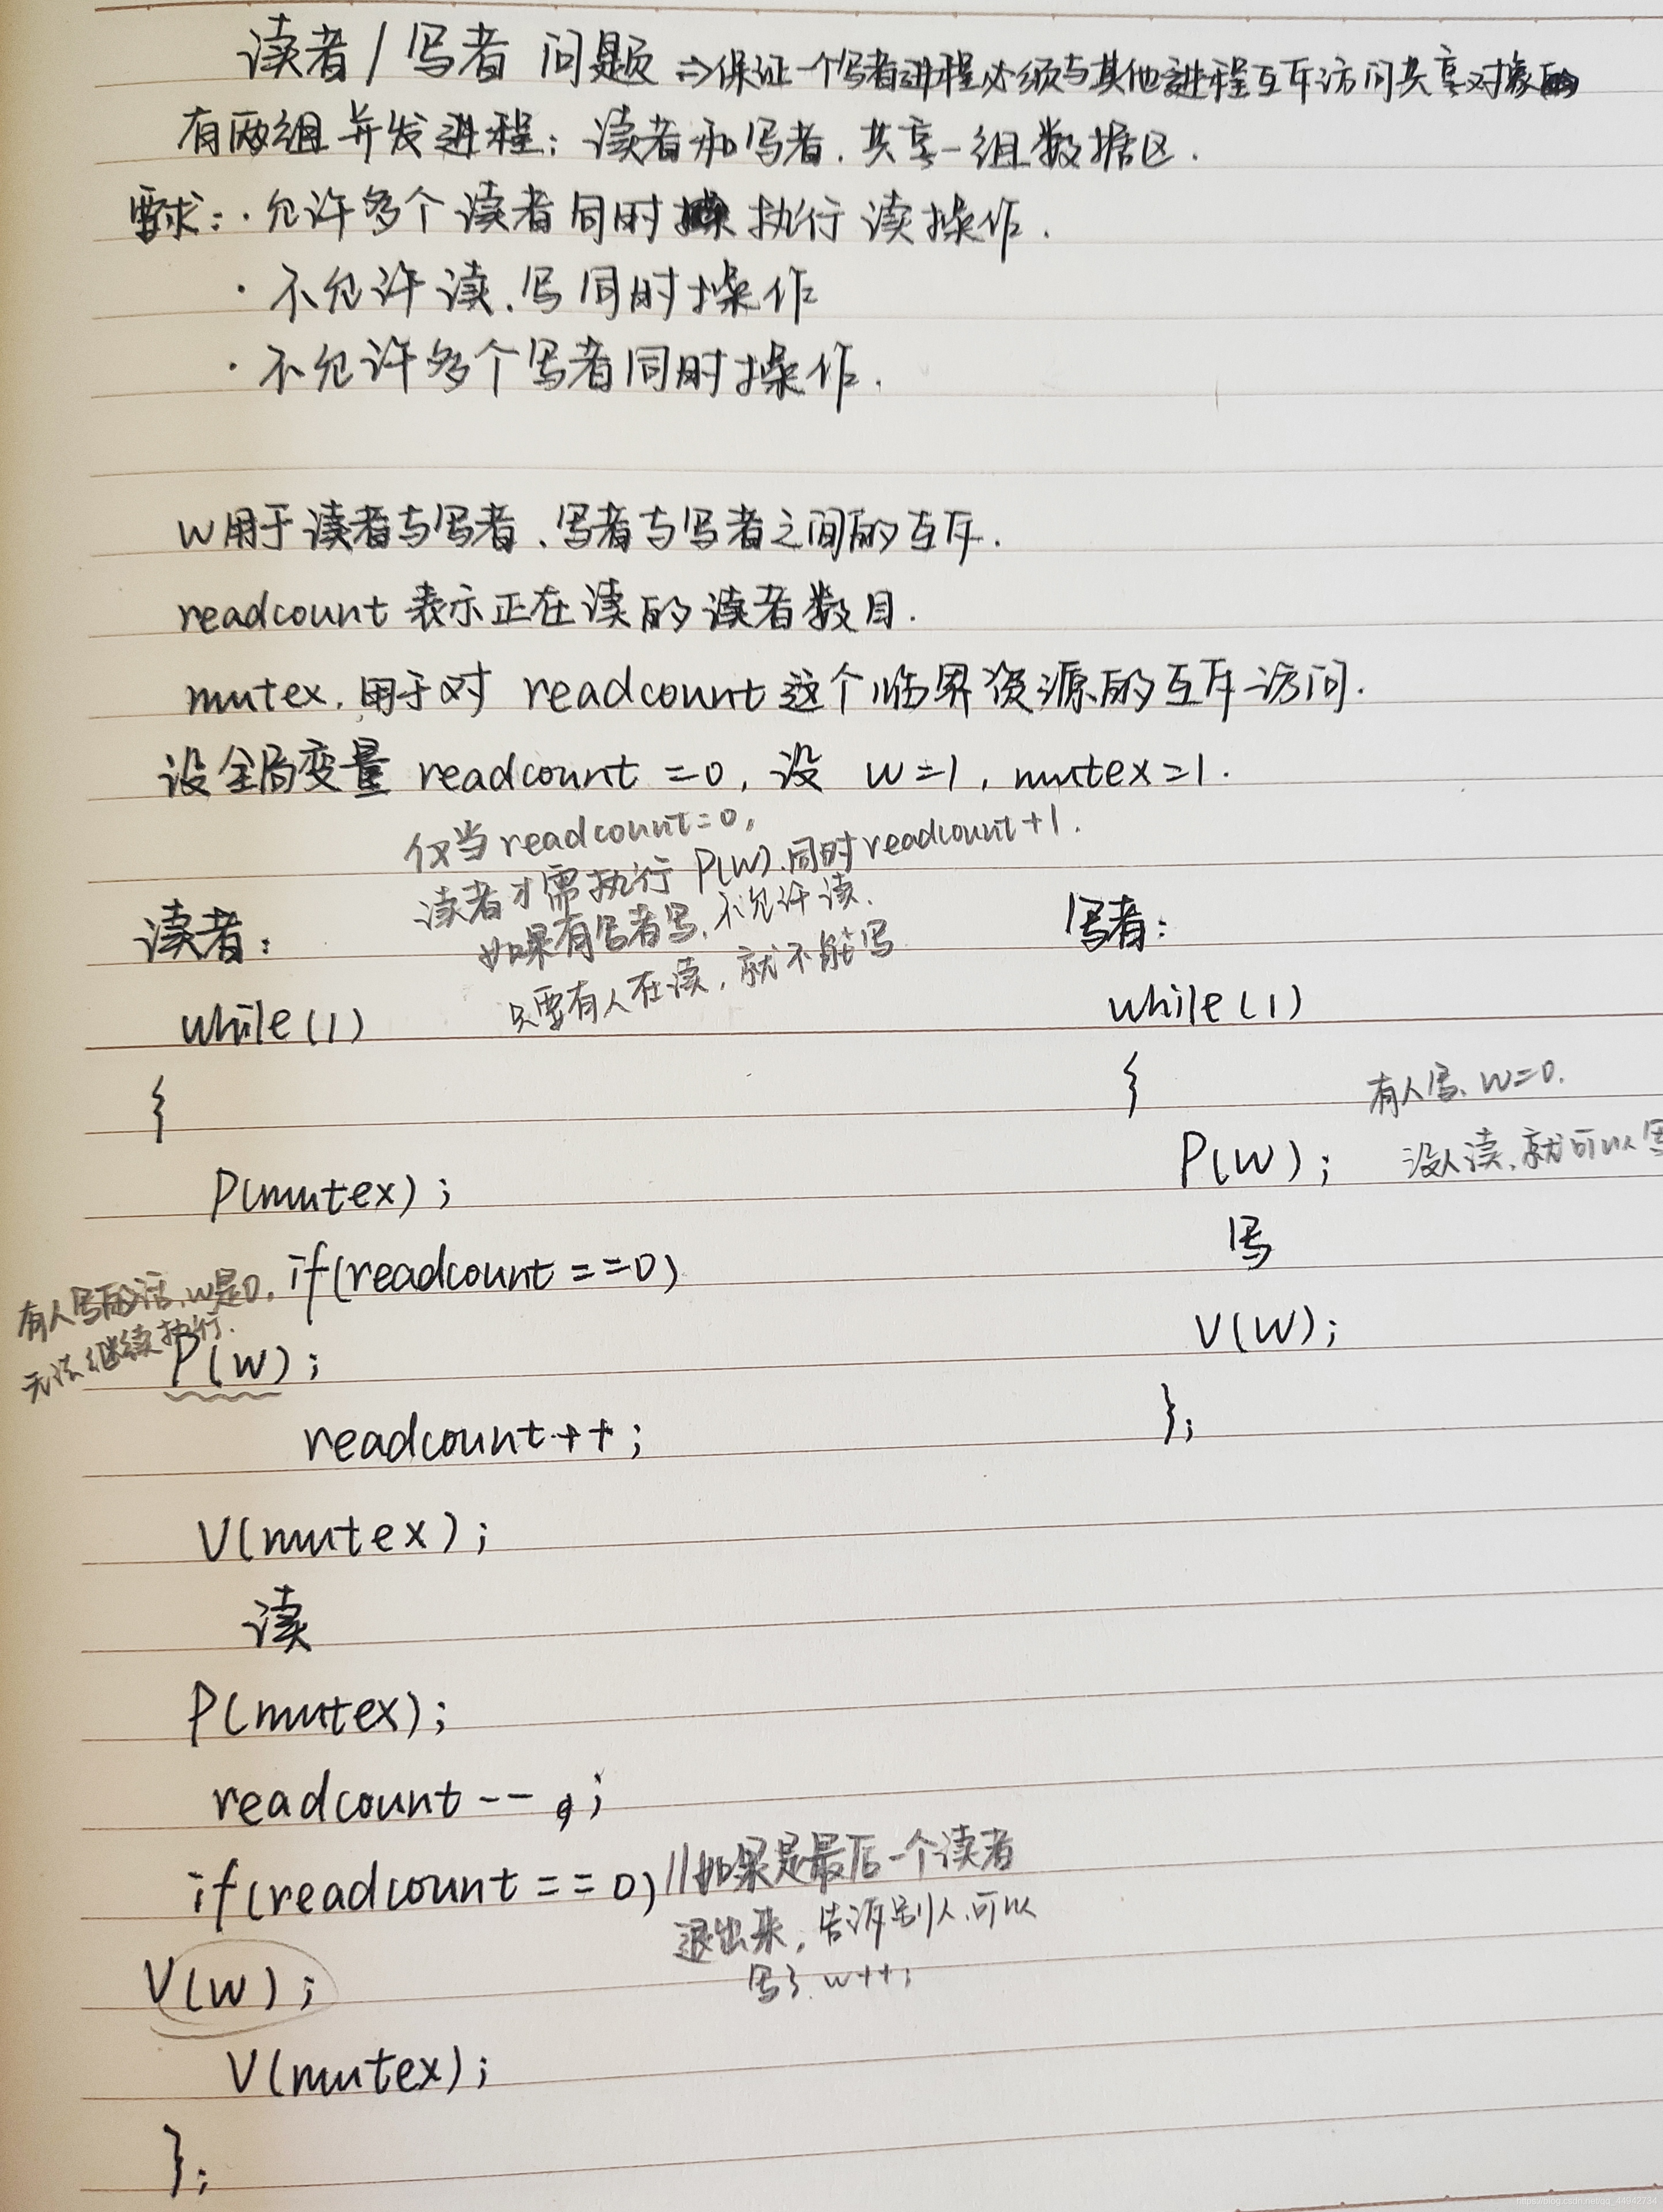 读者/写者 问题 ⇒保证一个写者进程必须与其他进程互斥访问共享对象
有两组并发进程：读者和写者，共享一组数据区.
要求：·允许多个读者同时执行读操作.
·不允许读、写同时操作
·不允许多个写者同时操作.
W用于读者与写者、写者与写者之间的互斥.
readcount 表示正在读的读者数目.
mutex，用于对 readcount 这个临界资源的互斥访问.
设全局变量 readcount =0，设 w=1, mutex=1.
仅当readcount=0,
读者才需执行 P(W).同时readcount+1.
如果有写者写，不允许读.
只要有人在读，就不能写
读者：
while(1)
{
P(mutex);
if(readcount==0)
有人写的话，w是0,
无法继续执行.
P(W);
readcount++;
V(mutex);
读
P(mutex);
readcount--;
if(readcount==0) //如果是最后一个读者
退出来，告诉别人可以
写了 w++;
V(W);
V(mutex);
};
写者：
while(1)
{
有人写、W=0.
P(W); 没人读，就可以写
写
V(W);
};
https://blog.csdn.net/qq_44942734